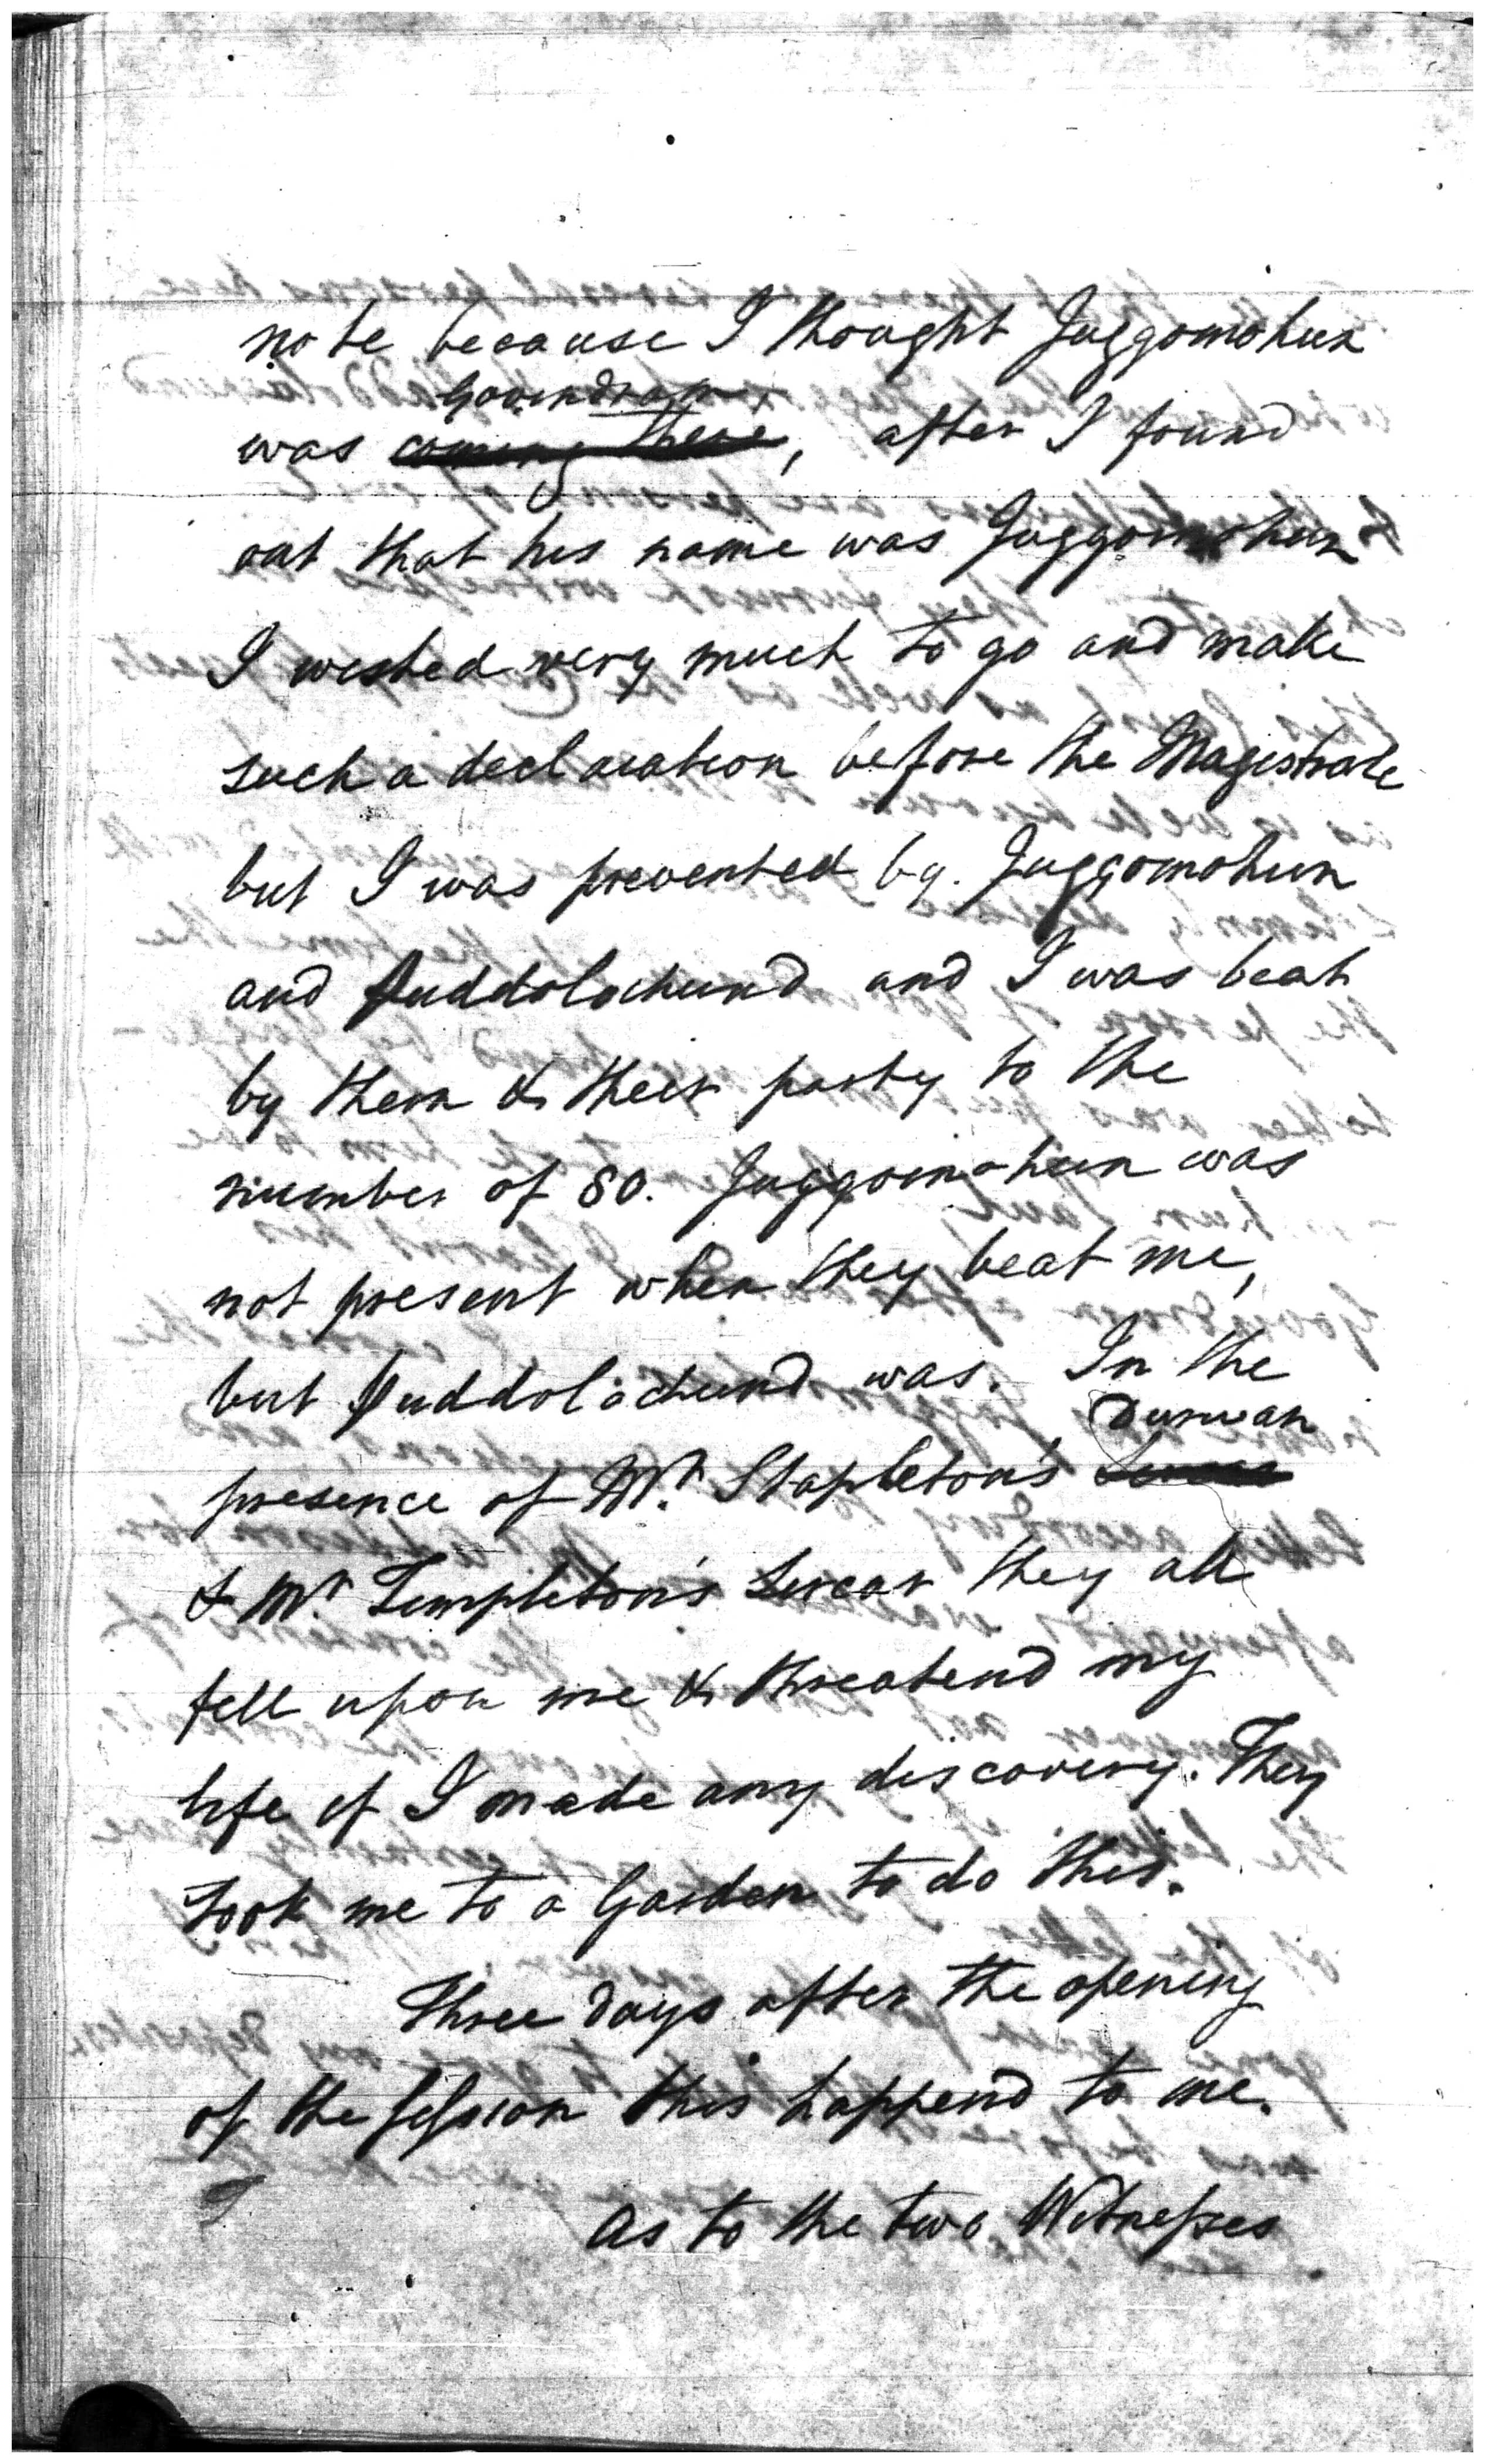 note because I thought Juggomohun
Govindram
was coming there, after I found
out that his name was Juggomohun
I wished very much to go and make
such a declaration before the Magistrate
but I was prevented by Juggomohun
and Puddolochund and I was beat
by them & their party to the
number of 80. Juggomohun was
not present when they beat me,
but Puddolochund was. In the
Durwan
presence of Mr. Stapleton's
& Mr. Templeton's Sircar they all
fell upon me & threatend my
life if I made any discovery. They
took me to a Garden to do this.
Three days after the opening
of the Session this happend to me.
As to the two Witnesses